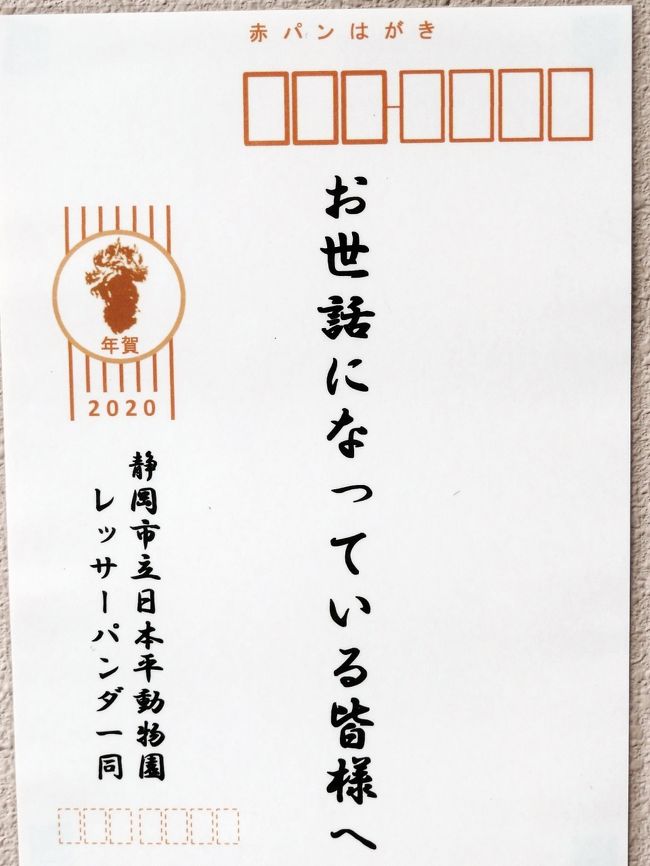 赤パンはがき
お世話になっている皆様へ
年賀
2020
静岡市立日本平動物園
レッサーパンダ一同